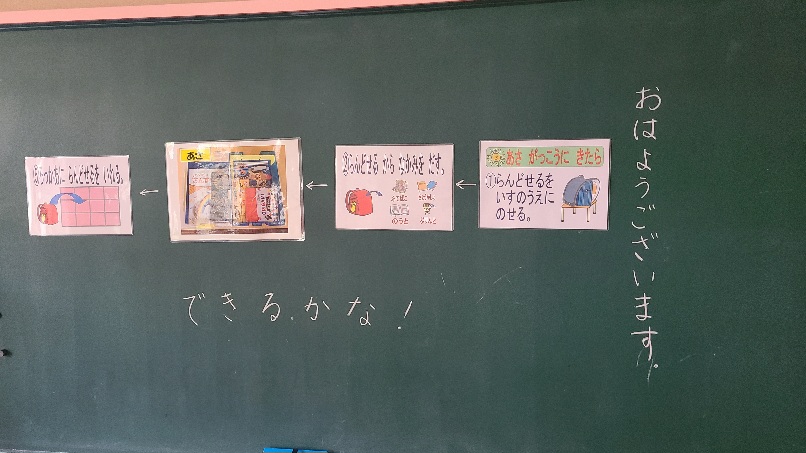 おはようございます。
あさ がっこうに きたら
①らんどせるを
いすのうえに
のせる。
②らんどせる から なかみを だす。
のうと
あさ
らんどせるを いれる。
できるかな!